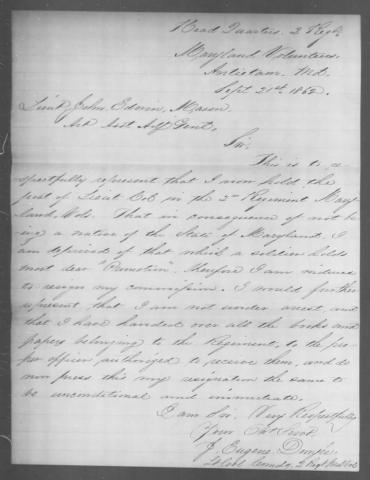 Head Quarters. 2 Regt.
Maryland Volunteers.
Antietam. Md.
Sept. 21st. 1862.
Lieut. John. Edwin. Mason.
Act Asst Adjt Genl.
Sir.
This is to re
spectfully represent that I now hold the
post of Lieut Col in the 2nd Regiment Mary
land Vols. That in consequence of not be
ing a native of the State of Maryland, I
am deprived of that which a soldier holds
most dear "Promotion". Therefore I am induced
to resign my commission. I would further
represent that I am not under arrest, and
that I have handed over all the books and
papers belonging to the Regiment, to the pro
per officer, authorized to receive them, and do
now press this my resignation the same to
be unconditional and immediate.
I am Sir. Very Respectfully
Your Obt Servt.
J. Eugene Duryée.
Lt Col. Comdg. 2 Regt Md Vols